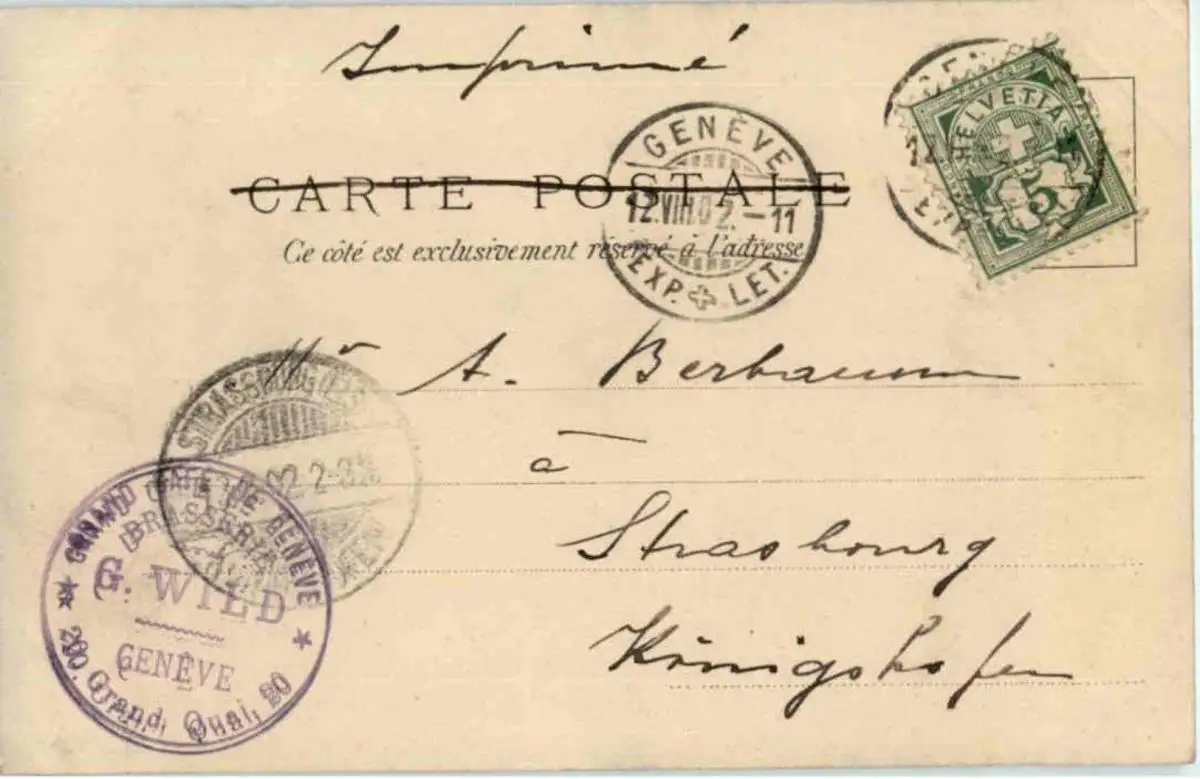 Imprimé
GENÈVE
12.VIII.02.-11
EXP. LET.
HELVETIA
5
CARTE POSTALE
Ce côté est exclusivement réservé à l'adresse
Mr A. Berbaum
à
Strasbourg
Königshofen
STRASSBURG
02 2-3
GRAND CAFÉ DE GENÈVE
BRASSERIE
G. WILD
GENÈVE
20. Grand Quai, 20